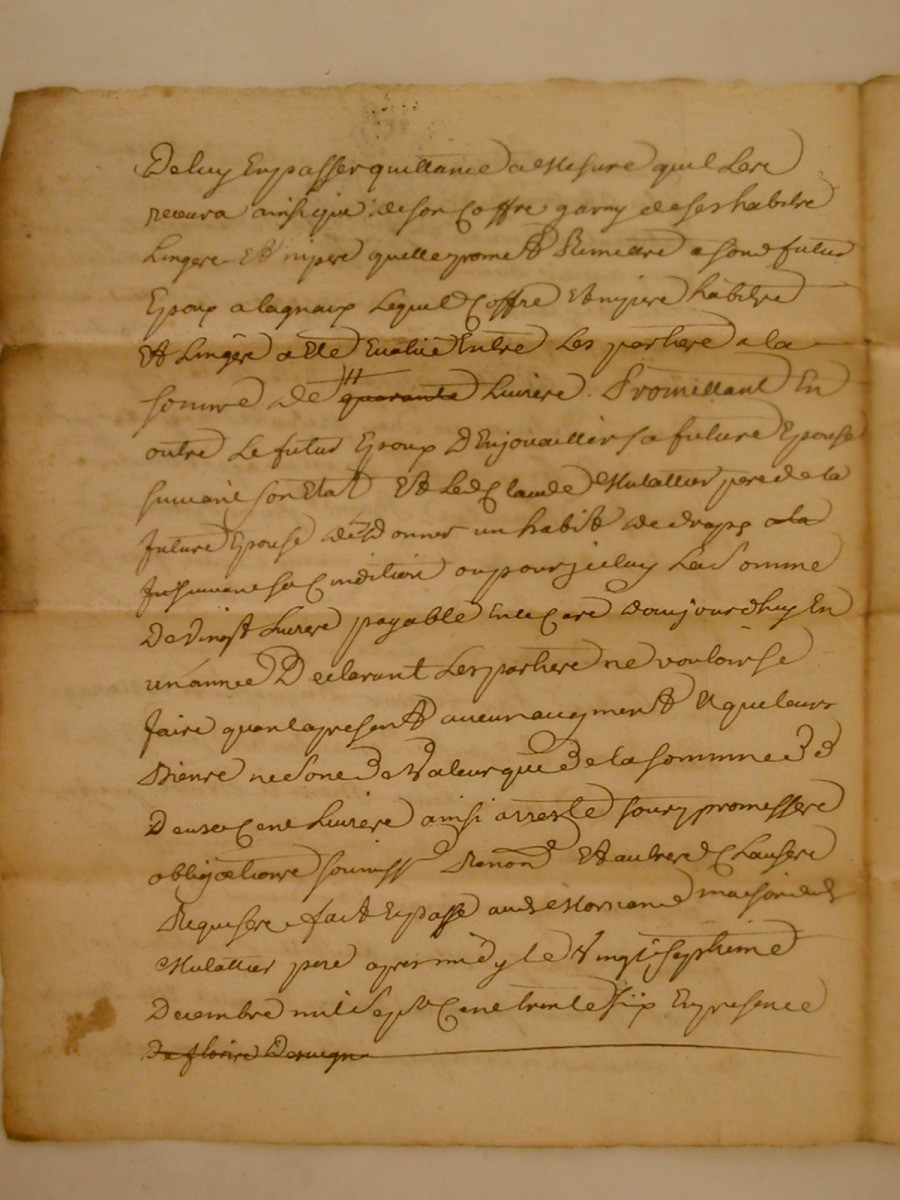 De luy En passer quittance a Mesure quil Les
recevra ainsi que de son Coffre garny de ses habits
Linges Et nipes quelle promet Remettre a sond futur
Epoux a lagnaux Lequel Coffre Et nipes habits
Et Linges a Eté Evalué Entre Les parties a la
somme de quarante Livres. Promettant En
outre Le futur Epoux D'Enjouailler sa future Epouse
suivant son Etat Et Led Claude Mulattier pere de la
future Epouse de Donner un habit de drap
suivant sa Condition ou pour jceluy La Somme
De Vingt Livres payable En le Cas daujourdhuy En
un année Declarant Les parties ne vouloir se
faire quant apresent aucun augment Et que leurs
Biens ne sont De Valeur que De la somme De
Deux Cent Livres ainsi arresté sous promesses
obligations soumiss Renond Et autres Clauses
Requises fait Et passé aud Mornand maison dud
Mulattier pere apres midy le Vingt septieme
Decembre mil Sept Cent trente six En presence
De